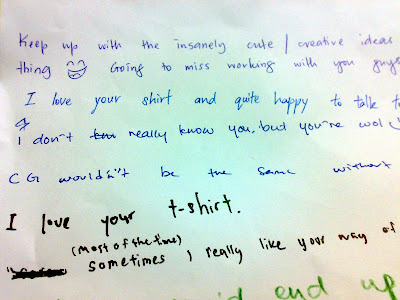 Keep up with the insanely cute / creative ideas
thing Going to miss working with you guys
I love your shirt and quite happy to talk to
I don't really know you, but you're
CG wouldn't be the same without
I love your t-shirt.
(most of the time)
sometimes, really like your way of
end up